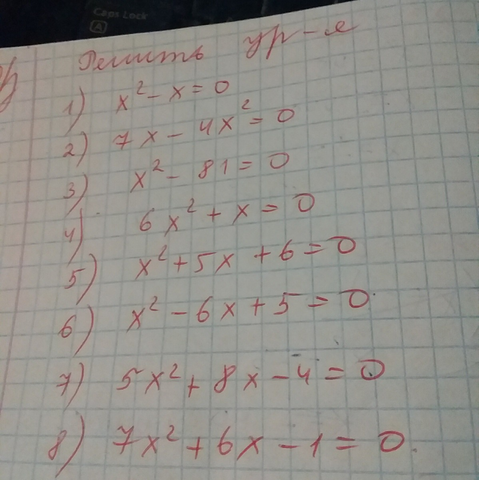 Caps Lock
A
Решить ур-е
1) x² - x = 0
2) 7x - 4x² = 0
3) x² - 81 = 0
4) 6x² + x = 0
5) x² + 5x + 6 = 0
6) x² - 6x + 5 = 0
7) 5x² + 8x - 4 = 0
8) 7x² + 6x - 1 = 0.